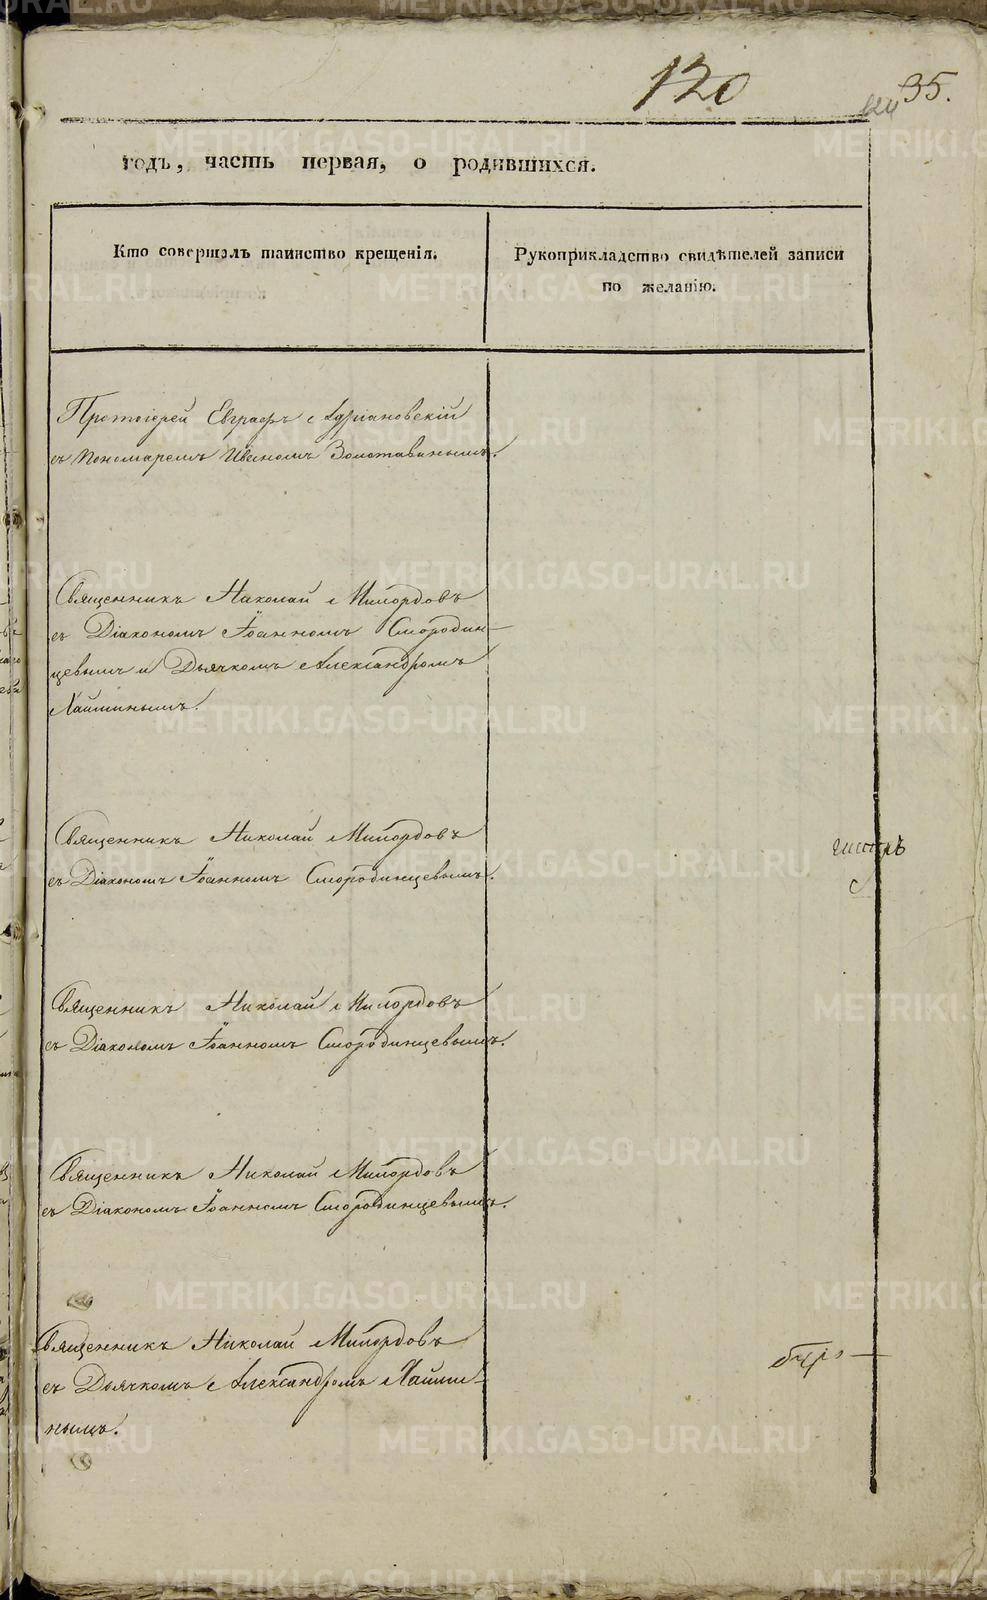 120
35.
124
годъ, часть первая, о родившихся.
Кто совершалъ таинство крещенія.
Рукоприкладство свидѣтелей записи
по желанію.
Протоіерей Евграфъ Адріановскій
съ Пономаремъ Иваномъ Золотавинымъ.
Священникъ Николай Милордовъ
съ Діакономъ Іоанномъ Смородин-
цевымъ и Дьячкомъ Александромъ
Хайминымъ.
Священникъ Николай Милордовъ
съ Діакономъ Іоанномъ Смородинцевымъ.
Священникъ Николай Милордовъ
съ Діакономъ Іоанномъ Смородинцевымъ.
Священникъ Николай Милордовъ
съ Діакономъ Іоанномъ Смородинцевымъ.
Священникъ Николай Милордовъ
съ Дьячкомъ Александромъ Хайми-
нымъ.
METRIKI.GASO-URAL.RU